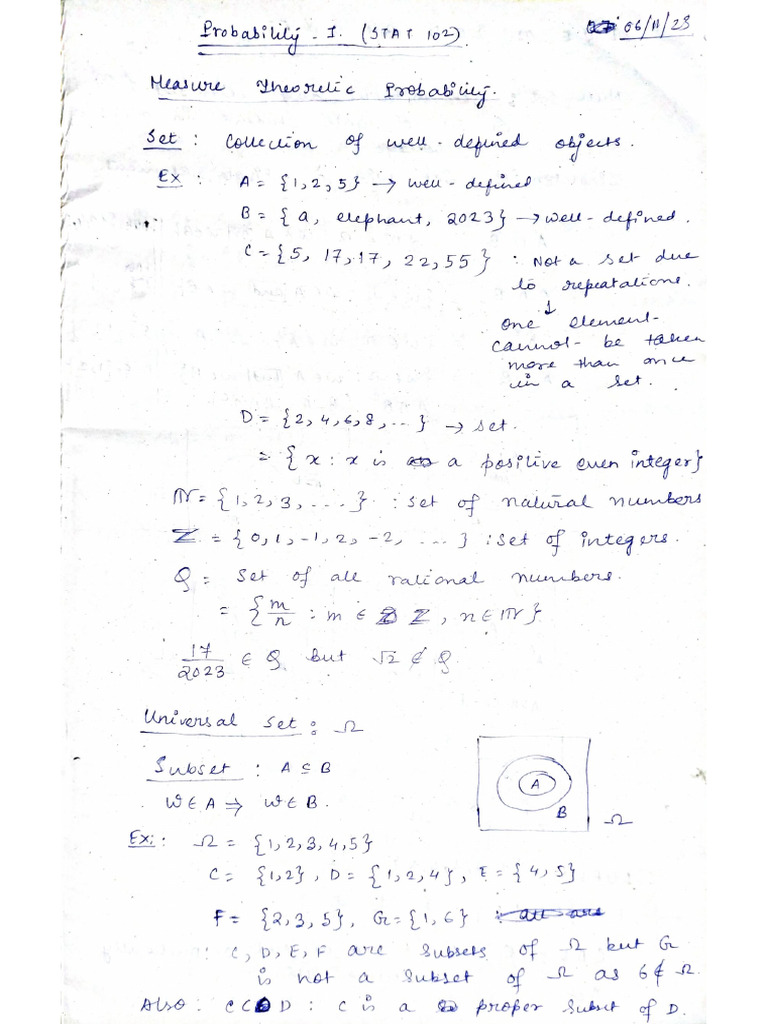 Probability - I. (STAT 102)
06/11/23
Measure Theoretic Probability.
Set : Collection of well-defined objects.
Ex : A = {1,2,5} → well-defined
B = {a, elephant, 2023} → well-defined.
C = {5, 17, 17, 22, 55} : Not a set due
to repeatations.
↓
one element
cannot be taken
more than once
in a set.
D = {2,4,6,8,...} → set.
= {x : x is a positive even integer}
ℕ = {1,2,3,....} : set of natural numbers
ℤ = {0,1,-1,2,-2,...} : set of integers.
Q = set of all rational numbers.
= {m/n : m ∈ ℤ, n ∈ ℕ}
17/2023 ∈ Q but √2 ∉ Q.
Universal Set : Ω
Subset : A ⊆ B
W ∈ A ⇒ W ∈ B.
A
B
Ω
Ex: : Ω = {1,2,3,4,5}
C = {1,2}, D = {1,2,4}, E = {4,5}
F = {2,3,5}, G = {1,6}
: C, D, E, F are subsets of Ω but G
is not a subset of Ω as 6 ∉ Ω.
Also : C ⊂ D : C is a proper subset of D.